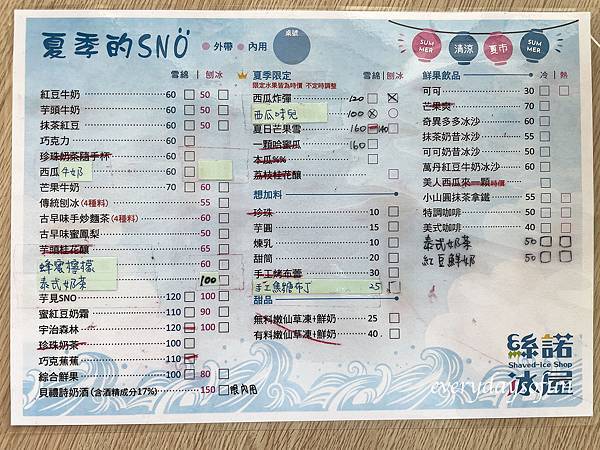 夏季的SNÖ
外帶 內用
桌號
SUMMER 清涼 夏市 SUMMER
雪綿 刨冰
紅豆牛奶 60 50
芋頭牛奶 60 50
抹茶紅豆 60 50
巧克力 60
珍珠奶茶隨手杯 60
西瓜牛奶 60
芒果牛奶 70 60
傳統刨冰(4種料) 55
古早味手炒麵茶(4種料) 60
古早味蜜鳳梨 50
芋頭桂花釀 65
蜂蜜檸檬 60
泰式奶茶 100
芋見SNO 120 100
蜜紅豆奶霜 110 90
宇治森林 120 100
珍珠奶茶 100
巧克蕉蕉 110
綜合鮮果 100 80
貝禮詩奶酒(含酒精成分17%) 150 限內用
夏季限定 雪綿 刨冰
限定水果皆為時價 不定時調整
西瓜炸彈 120
西瓜味兒 100
夏日芒果雪 160 140
一顆哈蜜瓜 160
本瓜%%
荔枝桂花釀
想加料
珍珠 10
芋圓 15
煉乳 10
甜筒 20
手工烤布蕾 30
手工焦糖布丁 25
甜品
無料嫩仙草凍+鮮奶 25
有料嫩仙草凍+鮮奶 40
鮮果飲品 冷 熱
可可 30
芒果爽 70
奇異多多冰沙 60
抹茶奶昔冰沙 60
可可奶昔冰沙 60
萬丹紅豆牛奶冰沙 60
美人西瓜來一顆時價
小山圓抹茶拿鐵 55
特調咖啡 50
美式咖啡 40
泰式奶茶 50
紅豆鮮奶 50
絲諾冰屋
Shaved-Ice Shop